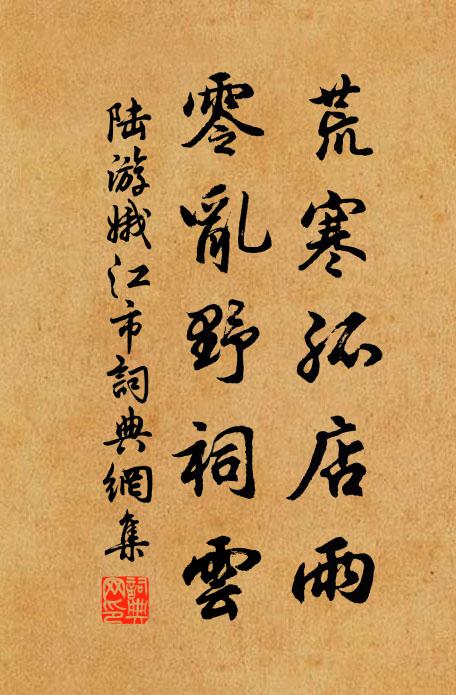 荒寒孤店雨
零亂野祠雲
陆游娥江市詞典網集
詞典網印